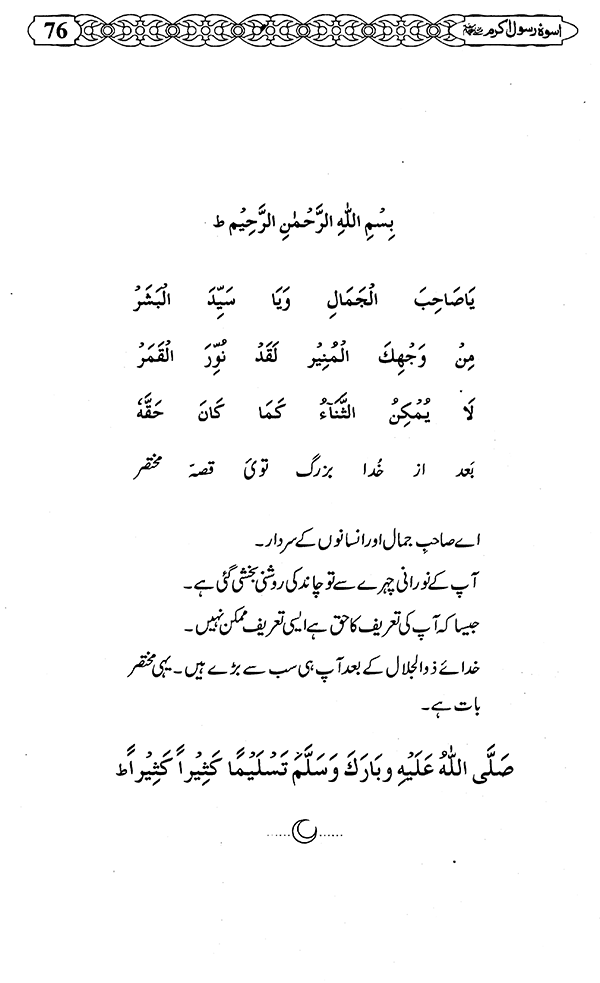 اسوۂ رسول اکرم ﷺ
76
بِسْمِ اللّٰهِ الرَّحْمٰنِ الرَّحِيْمِ ط
يَا صَاحِبَ الْجَمَالِ وَيَا سَيِّدَ الْبَشَرْ
مِنْ وَجْهِكَ الْمُنِيْرِ لَقَدْ نُوِّرَ الْقَمَرْ
لَا يُمْكِنُ الثَّنَآءُ كَمَا كَانَ حَقُّهٗ
بَعد از خُدا بزرگ توئ قصہ مختصر
اے صاحبِ جمال اور انسانوں کے سردار۔
آپ کے نورانی چہرے سے تو چاند کی روشنی بخشی گئی ہے۔
جیسا کہ آپ کی تعریف کا حق ہے ایسی تعریف ممکن نہیں۔
خدائے ذوالجلال کے بعد آپ ہی سب سے بڑے ہیں۔ یہی مختصر
بات ہے۔
صَلَّى اللّٰهُ عَلَيْهِ وبَارَكَ وَسَلَّمَ تَسْلِيْمًا كَثِيْراً كَثِيْراً ط